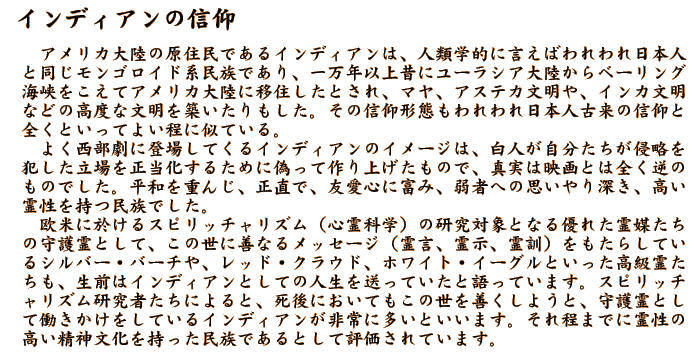 インディアンの信仰
アメリカ大陸の原住民であるインディアンは、人類学的に言えばわれわれ日本人
と同じモンゴロイド系民族であり、一万年以上昔にユーラシア大陸からベーリング
海峡をこえてアメリカ大陸に移住したとされ、マヤ、アステカ文明や、インカ文明
などの高度な文明を築いたりもした。その信仰形態もわれわれ日本人古来の信仰と
全くといってよい程に似ている。
よく西部劇に登場してくるインディアンのイメージは、白人が自分たちが侵略を
犯した立場を正当化するために偽って作り上げたもので、真実は映画とは全く逆の
ものでした。平和を重んじ、正直で、友愛心に富み、弱者への思いやり深き、高い
霊性を持つ民族でした。
欧米に於けるスピリッチャリズム（心霊科学）の研究対象となる優れた霊媒たち
の守護霊として、この世に善なるメッセージ（霊言、霊示、霊訓）をもたらしてい
るシルバー・バーチや、レッド・クラウド、ホワイト・イーグルといった高級霊た
ちも、生前はインディアンとしての人生を送っていたと語っています。スピリッチ
ャリズム研究者たちによると、死後においてもこの世を善くしようと、守護霊とし
て働きかけをしているインディアンが非常に多いといいます。それ程までに霊性の
高い精神文化を持った民族であるとして評価されています。